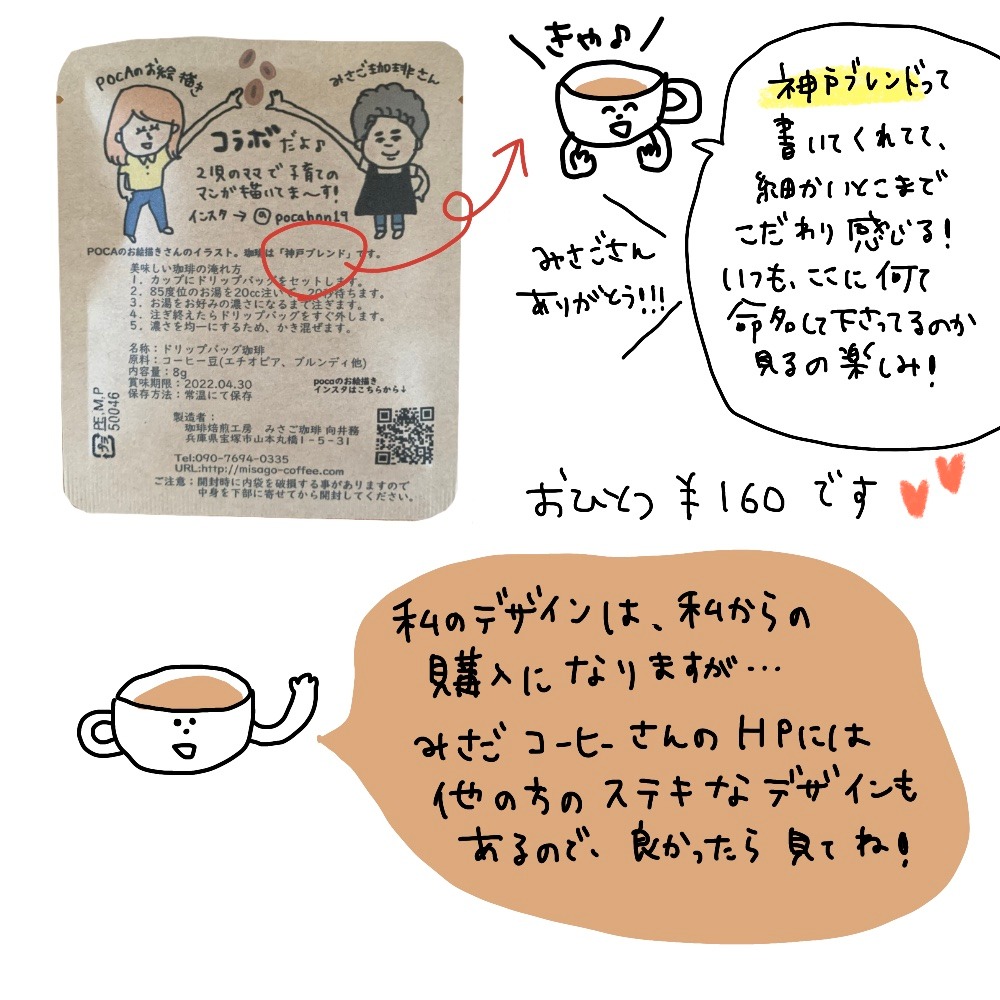 POCAのお絵描き
みさご珈琲さん
コラボだよ♪
2児のママで子育ての
マンガ描いてま〜す!
インスタ→@pocahan19
POCAのお絵描きさんのイラスト。珈琲は「神戸ブレンド」です。
美味しい珈琲の淹れ方
1．カップにドリップバッグをセットします。
2．85度位のお湯を20cc注いで、20秒待ちます。
3．お湯をお好みの濃さになるまで注ぎます。
4．注ぎ終えたらドリップバッグをすぐ外します。
5．濃さを均一にするため、かき混ぜます。
名称：ドリップバッグ珈琲
原料：コーヒー豆(エチオピア、ブルンディ他)
内容量：8g
賞味期限：2022.04.30
保存方法：常温にて保存
pocaのお絵描き
インスタはこちらから↓
プラ
PE.M.P
50046
製造者：
珈琲焙煎工房　みさご珈琲 向井務
兵庫県宝塚市山本丸橋1-5-31
Tel:090-7694-0335
URL:http://misago-coffee.com
ご注意：開封時に内袋を破損する事がありますので
中身を下部に寄せてから開封してください。
きゃ♪
神戸ブレンドって
書いてくれてて、
細かいとこまで
こだわり感じる!
いつも、ここに何て
命名して下さってるのか
見るの楽しみ!
みさごさん
ありがとう!!!
おひとつ ¥160です
私のデザインは、私からの
購入になりますが…
みさごコーヒーさんのHPには
他の方のステキなデザインも
あるので、良かったら見てね!